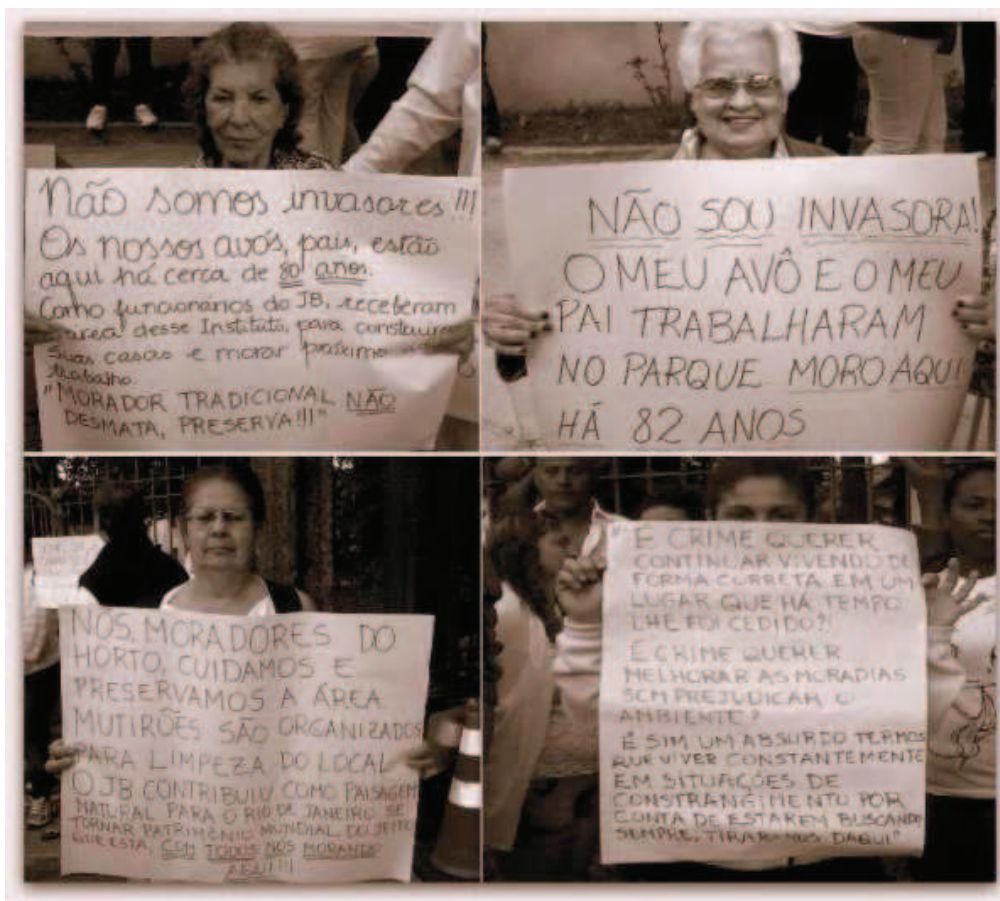 Não somos invasores!!!
Os nossos avós, pais, estão
aqui há cerca de 80 anos.
Como funcionários do JB, receberam
área desse Instituto, para construir
suas casas e morar próximo
trabalho.
"MORADOR TRADICIONAL NÃO
DESMATA, PRESERVA!!!"
NÃO SOU INVASORA!
O MEU AVÔ E O MEU
PAI TRABALHARAM
NO PARQUE MORO AQUI
HÁ 82 ANOS
NOS, MORADORES DO
HORTO, CUIDAMOS E
PRESERVAMOS A ÁREA
MUTIRÕES SÃO ORGANIZADOS
PARA LIMPEZA DO LOCAL
O JB CONTRIBUIU COMO PAISAGEM
NATURAL PARA O RIO DE JANEIRO SE
TORNAR PATRIMÔNIO MUNDIAL DO JEITO
QUE ESTA, COM TODOS NOS MORANDO
AQUI!!!
"É CRIME QUERER
CONTINUAR VIVENDO DE
FORMA CORRETA EM UM
LUGAR QUE HÁ TEMPO
LHE FOI CEDIDO?!
É CRIME QUERER
MELHORAR AS MORADIAS
SEM PREJUDICAR O
AMBIENTE?
É SIM UM ABSURDO TERMOS
QUE VIVER CONSTANTEMENTE
EM SITUAÇÕES DE
CONSTRANGIMENTO POR
CONTA DE ESTAREM BUSCANDO
SEMPRE, TIRAR-NOS DAQUI"